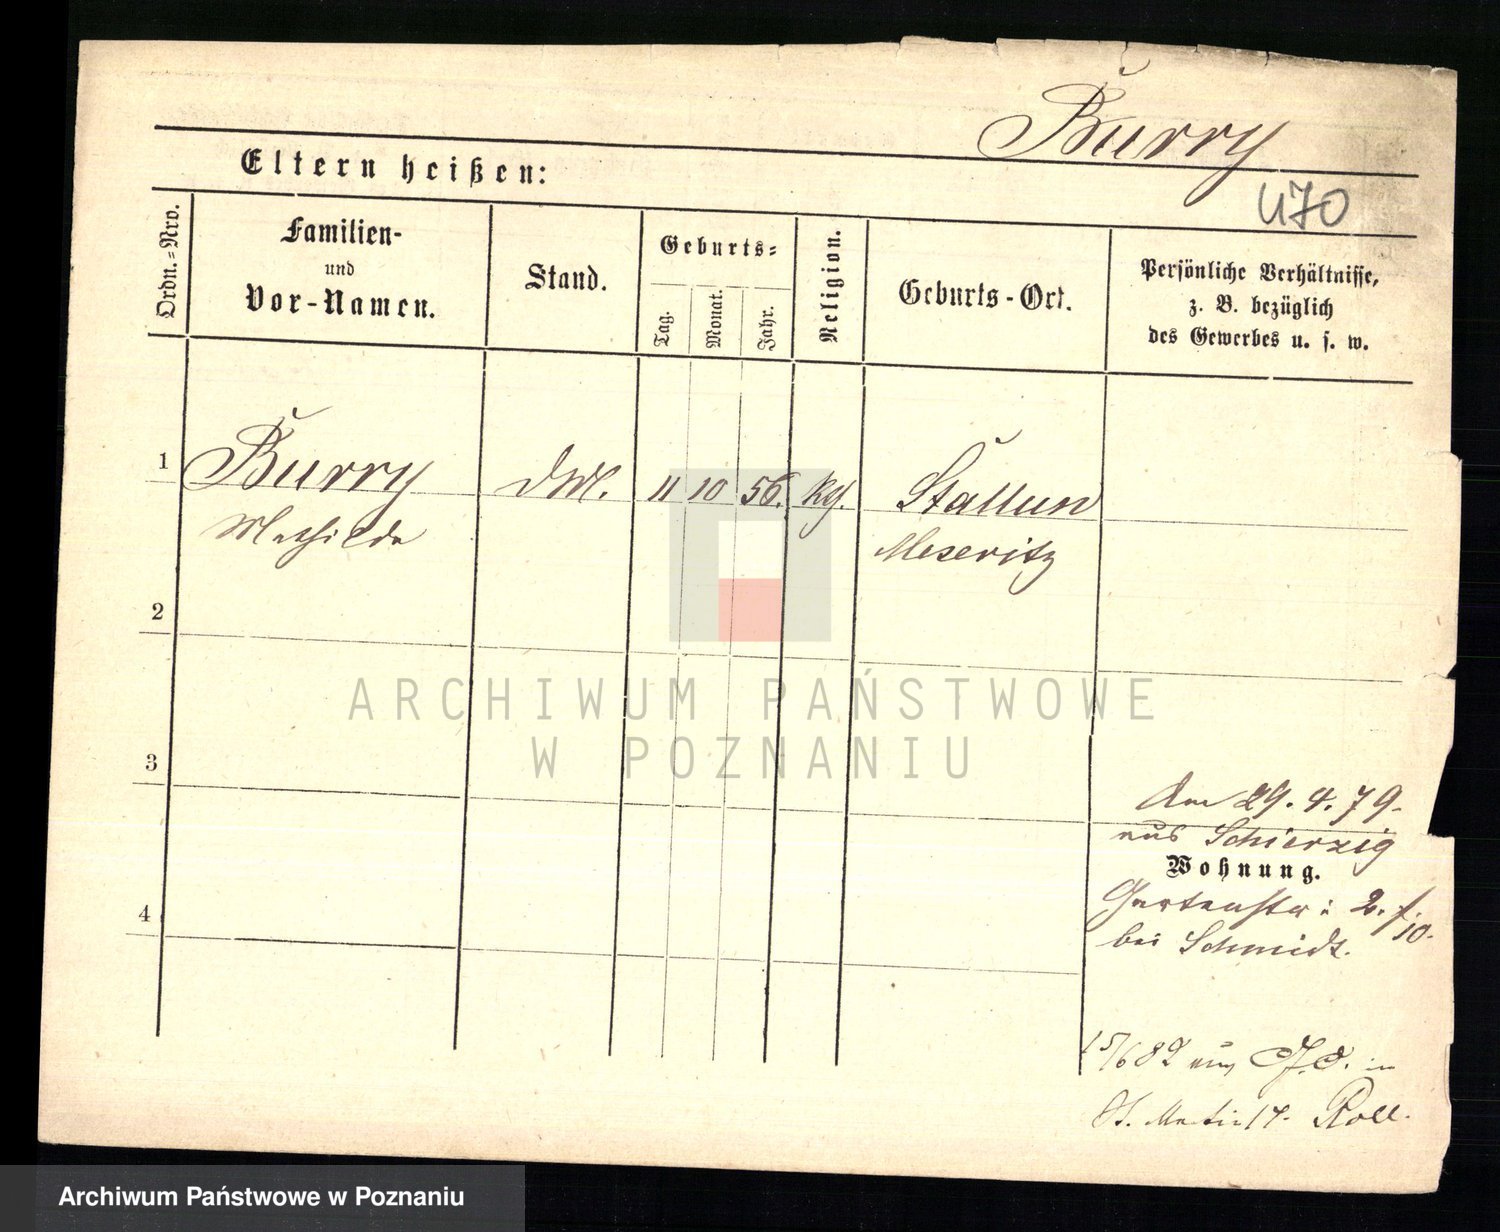 Burry
Eltern heißen:
470
Ordn.-Nro.
Familien-
und
Vor-Namen.
Stand.
Geburts-
Tag.
Monat.
Jahr.
Religion.
Geburts-Ort.
Persönliche Verhältnisse,
z. B. bezüglich
des Gewerbes u. s. w.
1
Burry
11 10 56.
Mathilde
Meseritz
2
ARCHIWUM PAŃSTWOWE
W POZNANIU
3
Am 29. 4. 79.
aus Schierzig
Wohnung.
4
Gartenstr: 2.
bei Schmidt.
15/6 82
St. Martin 14. Roll.
Archiwum Państwowe w Poznaniu